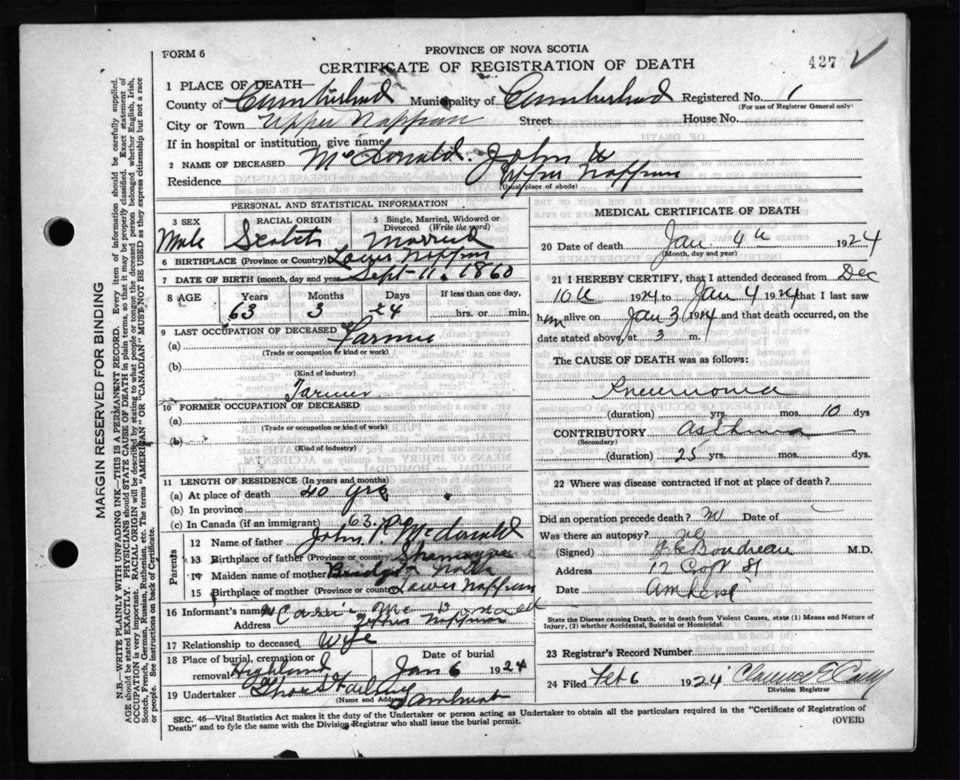 FORM 6
PROVINCE OF NOVA SCOTIA
CERTIFICATE OF REGISTRATION OF DEATH
427
1 PLACE OF DEATH—
County of Cumberland Municipality of Cumberland Registered No. 1
(For use of Registrar General only)
City or Town Upper Nappan Street House No.
If in hospital or institution, give name
2 NAME OF DECEASED McDonald, John
Residence Upper Nappan
(Usual place of abode)
PERSONAL AND STATISTICAL INFORMATION
3 SEX RACIAL ORIGIN 5 Single, Married, Widowed or Divorced (Write the word)
Male Scotch Married
6 BIRTHPLACE (Province or Country) Lower Nappan
7 DATE OF BIRTH (month, day and year) Sept. 11. 1860
8 AGE Years Months Days If less than one day,
63 3 24 hrs. or min.
9 LAST OCCUPATION OF DECEASED
(a) Farmer
(Trade or occupation or kind of work)
(b)
(Kind of industry)
Farmer
10 FORMER OCCUPATION OF DECEASED
(a)
(Trade or occupation or kind of work)
(b)
(Kind of industry)
11 LENGTH OF RESIDENCE (In years and months)
(a) At place of death 40 yrs
(b) In province
(c) In Canada (if an immigrant) 63 yrs
Parents
12 Name of father John R McDonald
13 Birthplace of father (Province or country)
14 Maiden name of mother Bridget
15 Birthplace of mother (Province or country) Lower Nappan
16 Informant's name Carrie McDonald
Address Nappan
17 Relationship to deceased Wife
18 Place of burial, cremation or removal Date of burial
Highland Jan 6 1924
19 Undertaker Amherst
(Name and Address)
MEDICAL CERTIFICATE OF DEATH
20 Date of death Jan 4th 1924
(Month, day and year)
21 I HEREBY CERTIFY, that I attended deceased from Dec
10th 1924 to Jan 4 1924 that I last saw
him alive on Jan 3 1924 and that death occurred, on
date stated above, at 3 m.
The CAUSE OF DEATH was as follows:
Pneumonia
(duration) yrs. mos. 10 dys
CONTRIBUTORY Asthma
(Secondary)
(duration) 25 yrs. mos. dys.
22 Where was disease contracted if not at place of death?
Did an operation precede death? No Date of
Was there an autopsy? No
(Signed) Boudreau M.D.
Address 12 Copp St
Date Amherst
State the Disease causing Death, or in death from Violent Causes, state (1) Means and Nature of Injury, (2) whether Accidental, Suicidal or Homicidal.
23 Registrar's Record Number
24 Filed Feb 6 1924 Clarence
Division Registrar
SEC. 46—Vital Statistics Act makes it the duty of the Undertaker or person acting as Undertaker to obtain all the particulars required in the "Certificate of Registration of
Death" and to fyle the same with the Division Registrar who shall issue the burial permit. (OVER)
MARGIN RESERVED FOR BINDING
N.B.—WRITE PLAINLY WITH UNFADING INK—THIS IS A PERMANENT RECORD. Every item of information should be carefully supplied.
AGE should be stated EXACTLY. PHYSICIANS should STATE CAUSE OF DEATH in plain terms, so that it may be properly classified. Exact statement of
OCCUPATION is very important. RACIAL ORIGIN will be described by stating to what people or tongue the deceased person belonged whether English, Irish,
Scotch, French, German, Russian, Ruthenian, etc. The terms "AMERICAN" OR "CANADIAN" MUST NOT BE USED as they express citizenship but not a race
or people. See instructions on back of Certificate.